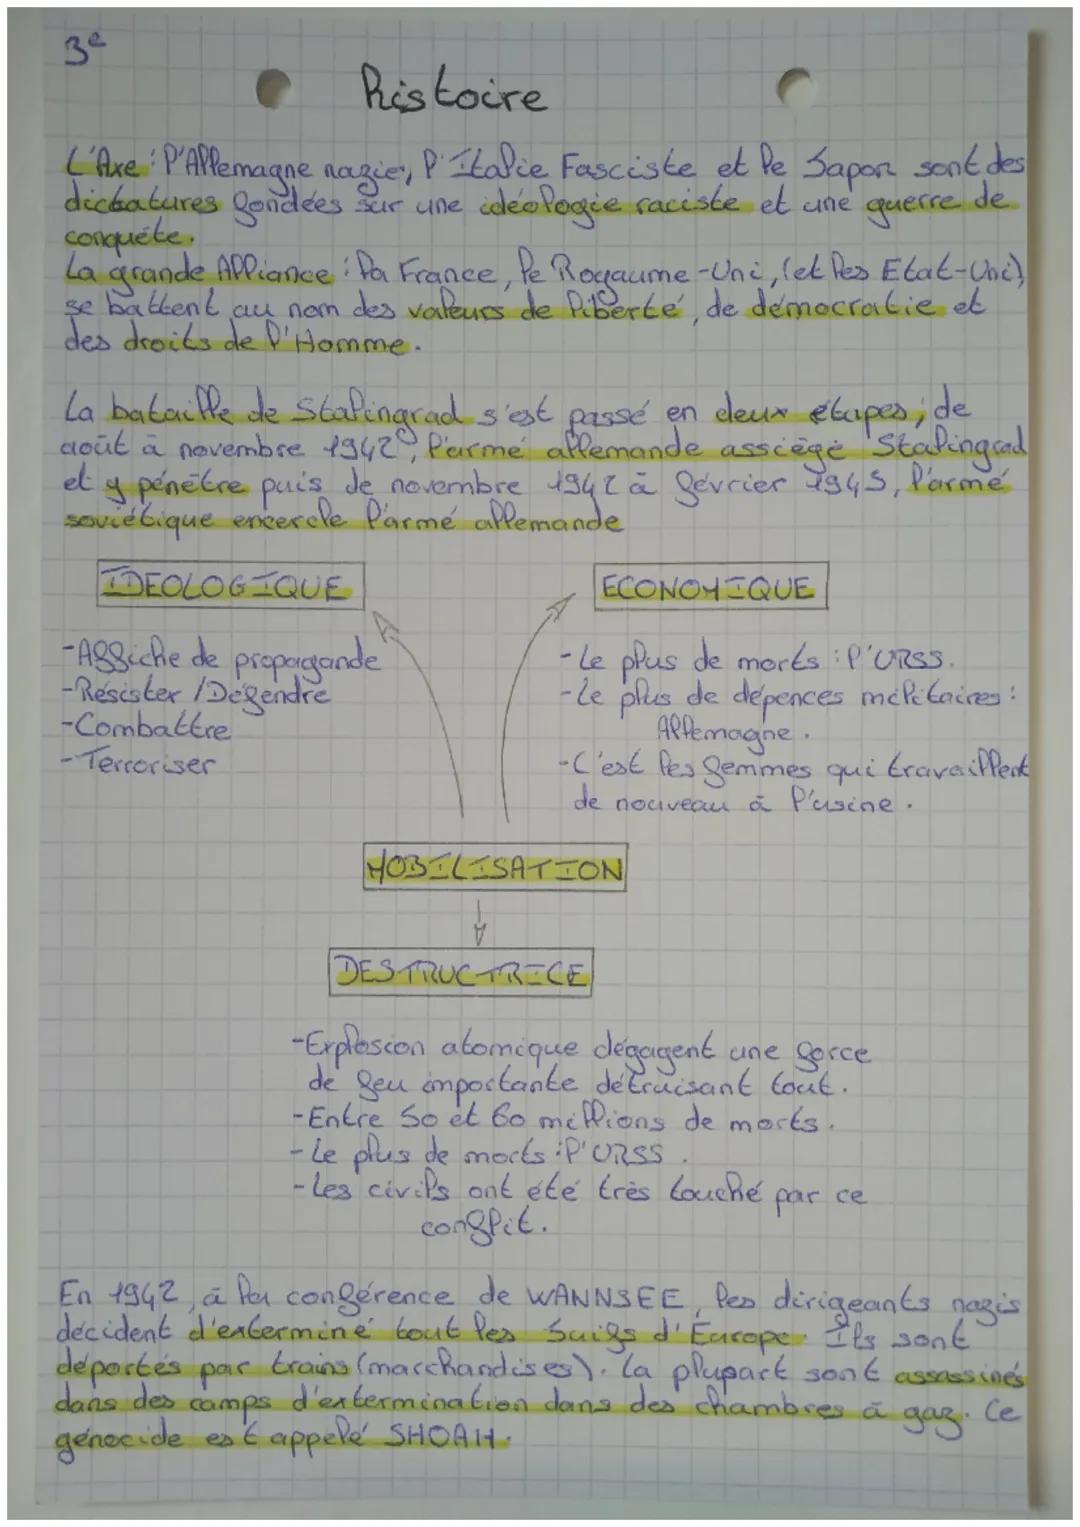 3e
Histoire
L'Axe : l'Allemagne nazie, l'Italie Fasciste et le Japon sont des
dictatures fondées sur une idéologie raciste et une guerre de
conquête.
La grande Alliance : la France, le Royaume-Uni, (et les Etat-Uni)
se battent au nom des valeurs de liberté, de démocratie et
des droits de l'Homme.
La bataille de Stalingrad s'est passé en deux étapes; de
août à novembre 1942, l'armé allemande assciège Stalingrad
et y pénètre puis de novembre 1942 à février 1943, l'armé
soviétique encercle l'armé allemande
IDEOLOGIQUE
ECONOMIQUE
-Affiche de propagande
-Résister / Défendre
-Combattre
-Terroriser
-Le plus de morts : l'URSS.
-Le plus de dépences militaires :
Allemagne.
-C'est les femmes qui travaillent
de nouveau à l'usine.
MOBILISATION
DESTRUCTRICE
-Explosion atomique dégagent une force
de feu importante détruisant tout.
-Entre 50 et 60 millions de morts.
-Le plus de morts : l'URSS.
-Les civils ont été très touché par ce
conflit.
En 1942, à la conférence de WANNSEE, les dirigeants nazis
décident d'exterminé tout les Juifs d'Europe. Ils sont
déportés par trains (marchandises). La plupart sont assassinés
dans des camps d'extermination dans des chambres à gaz. Ce
génocide est appelé SHOAH.